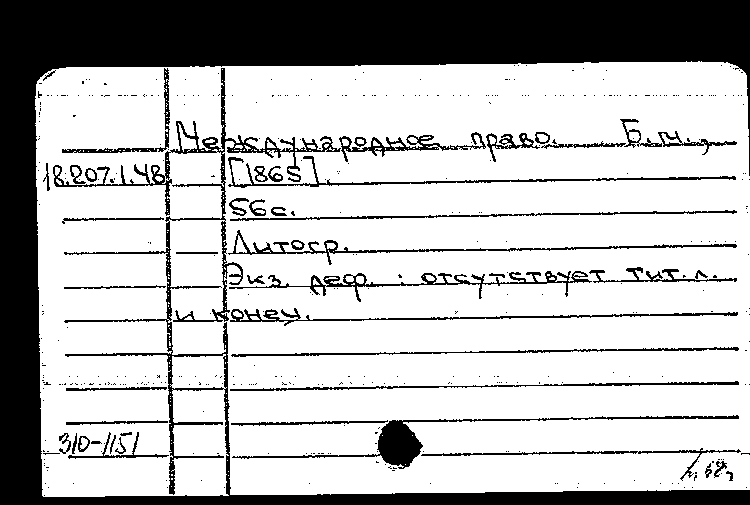 Международное право. Б.м.,
18.207.1.48 [1865].
56с.
Литогр.
Экз. деф. : отсутствует тит.л.
и конец.
310-1151